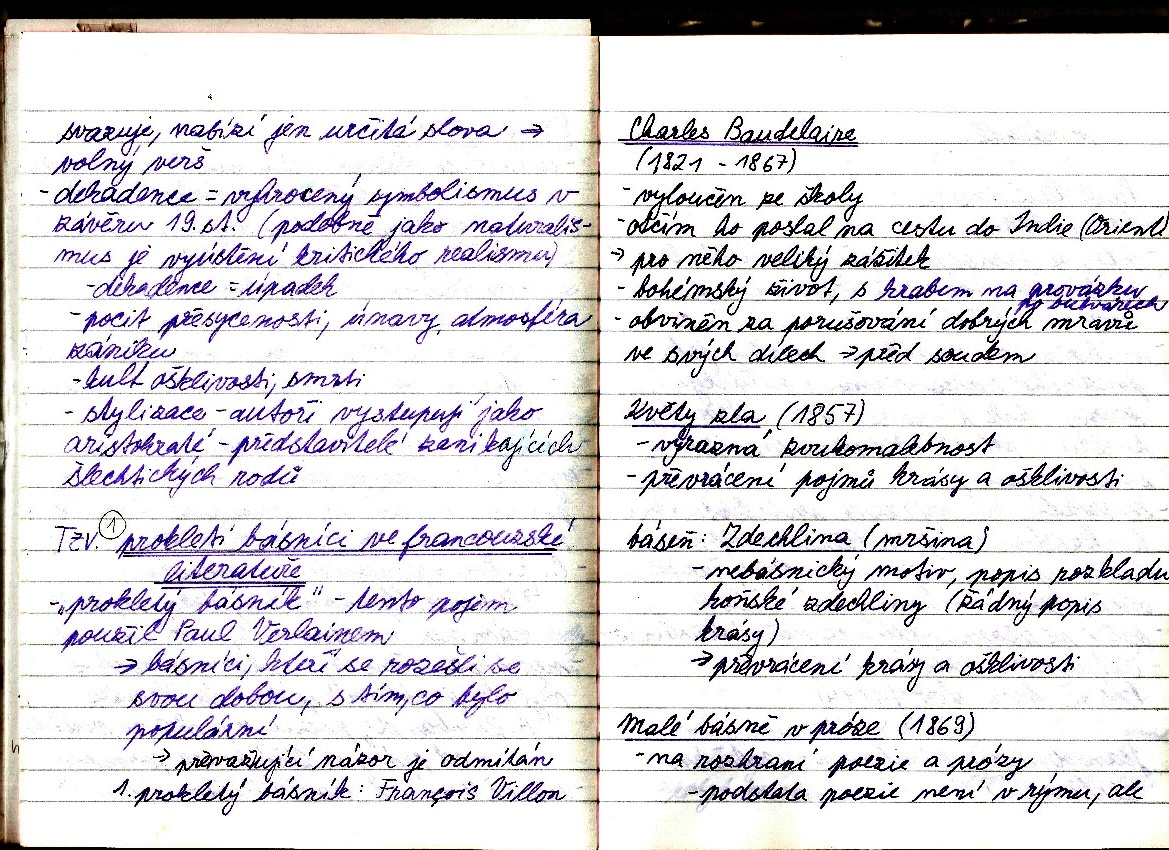 svazuje, nabízí jen určitá slova →
volný verš
- dekadence = vyhrocený symbolismus v
závěru 19. st. (podobně jako naturalis-
mus je vyústění kritického realismu)
- dekadence = úpadek
- pocit přesycenosti, únavy, atmosféra
zániku
- kult ošklivosti, smrti
- stylizace - autoři vystupují jako
aristokraté - představitelé zanikajících
šlechtických rodů
Tzv. ① prokletí básníci ve francouzské
literatuře
- „prokletý básník" - tento pojem
použil Paul Verlainem
→ básníci, kteří se rozešli se
svou dobou, s tím, co bylo
populární
→ převažující názor je odmítán
1. prokletý básník: François Villon
Charles Baudelaire
(1821 - 1867)
- vyloučen ze školy
- otčím ho poslal na cestu do Indie (Orient)
→ pro něho veliký zážitek
- bohémský život, s krabem na provázku
po bulvárech
- obviněn za porušování dobrých mravů
ve svých dílech → před soudem
Květy zla (1857)
- výrazná zvukomalebnost
- převrácení pojmů krásy a ošklivosti
báseň: Zdechlina (mršina)
- nebásnický motiv, popis rozkladu
koňské zdechliny (žádný popis
krásy)
→ převrácení krásy a ošklivosti
Malé básně v próze (1869)
- na rozhraní poezie a prózy
- podstata poezie není v rýmu, ale